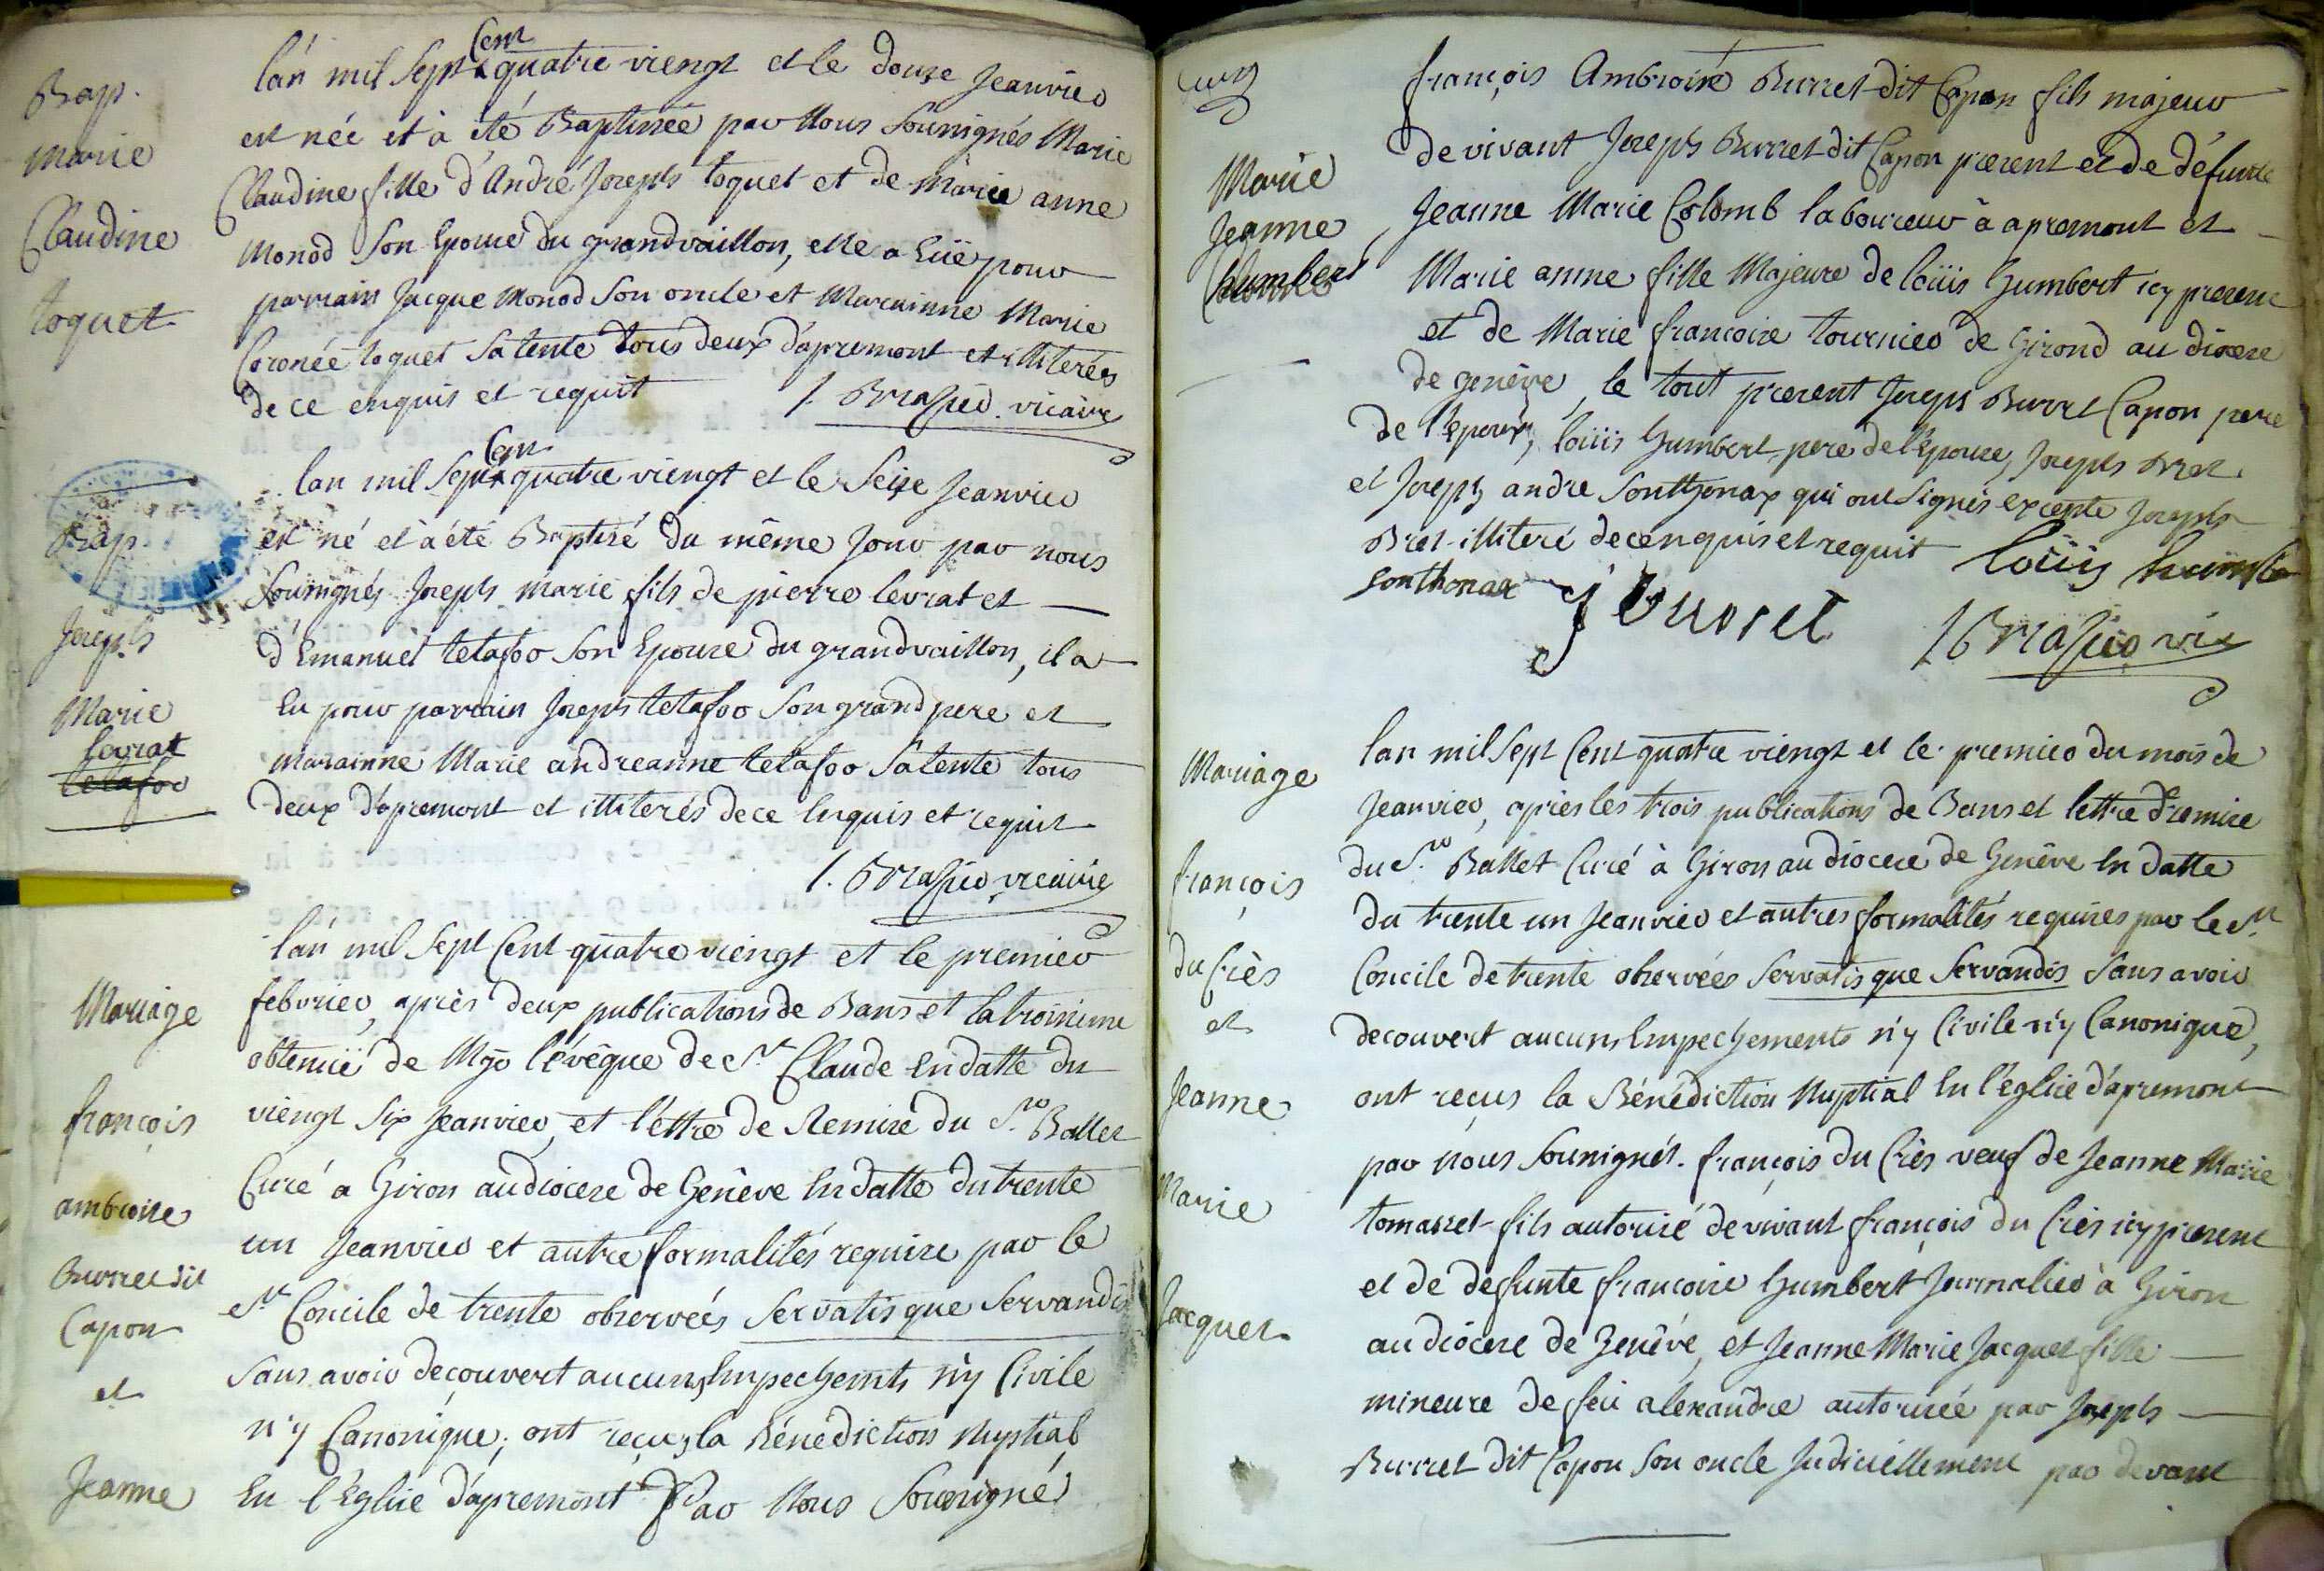 Bap.
marie
Claudine
toquet
lán mil Sept Cent quatre viengt et le douze Jeanvier
est née et à été Baptisée par Nous Soussignés Marie
Claudine fille d'André Joseph toquet et de marie anne
Monod Son Epouse du grandvaillon, elle a Euë pour
parrain Jacque Monod Son oncle et Marainne Marie
toquet Sa tente tous deux d'apremont et illiterées
de ce enquis et requit vicaire
Bap.
Joseph
Marie
levrat
letafoo
lan mil Sept Cen quatre viengt et le Seize Jeanvier
est né et à été Baptisé du même Jour par nous
Soussignés Joseph marie fils de pierre levrat et
d'Emanuel tetafoo Son Epouse du grandvaillon, il a
Eu pour parrain Joseph tetafoo Son grand pere et
marainne Marie andreanne tetafoo Sa tente tous
deux d'apremont et illiterés de ce Enquis et requit
vicaire
Mariage
françois
ambroise
Burret dit
Capon
et
Jeanne
lán mil Sept Cent quatre viengt et le premier
febvrier, après deux publications de Bans et la troisieme
obtenüe de Mgr l'évêque de St. Claude En datte du
viengt Six Jeanvier, et léttre de Remise du Sr. Ballet
Curé a Giron au diocese de Genêve En datte du trente
un Jeanvier et autre formalités requise par le
St. Concile de trente observées Servatis que Servandis
Sans avoir decouvert aucuns Empechemts n'y Civile
n'y Canonique; ont reçus la Bénédiction Nuptial
En l'Eglise d'apremont Par Nous Soussigné
Marie
Jeanne
humbert
françois Ambroise Burret dit Capon fils majeur
de vivant Joseph Burret dit Capon present et de défunte
Jeanne Marie Colomb laboureur à apremont et
Marie anne fille Majeure de loüis humbert icy present
et de Marie francoise tournier de Girond au diocese
de genêve, le tout present Joseph Burret Capon pere
de l'epoux, loüis humbert pere de l'Epouse, Joseph Bret
et Joseph andre Sonthonax qui ont Signés excepte Joseph
Bret illiteré de ce enquis et requit loüis humber
Sonthonax J Burret
vic
Mariage
françois
du Crès
et
Jeanne
Marie
Jacquet
lan mil Sept Cent quatre viengt et le premier du mois de
Jeanvier, après les trois publications de Bans et lettre d'remise
du Sr. Ballet Curé à Giron au diocese de Genêve En datte
du trente un Jeanvier et autres formalités requises par le St.
Concile de trente observées Servatis que Servandis Sans avoir
decouvert aucuns Empechements n'y Civile n'y Canonique,
ont reçus la Bénédiction Nuptial En l'église d'apremont
par nous Soussignés. françois du Crès veuf de Jeanne Marie
tomasset fils autorisé de vivant françois du Crès icy present
et de defunte francoise humbert Journalier à Giron
au diocese de Genêve, et Jeanne Marie Jacquet fille
mineure de feu alexandre autorisée par Joseph
Burret dit Capon Son oncle Judiciellement par devant